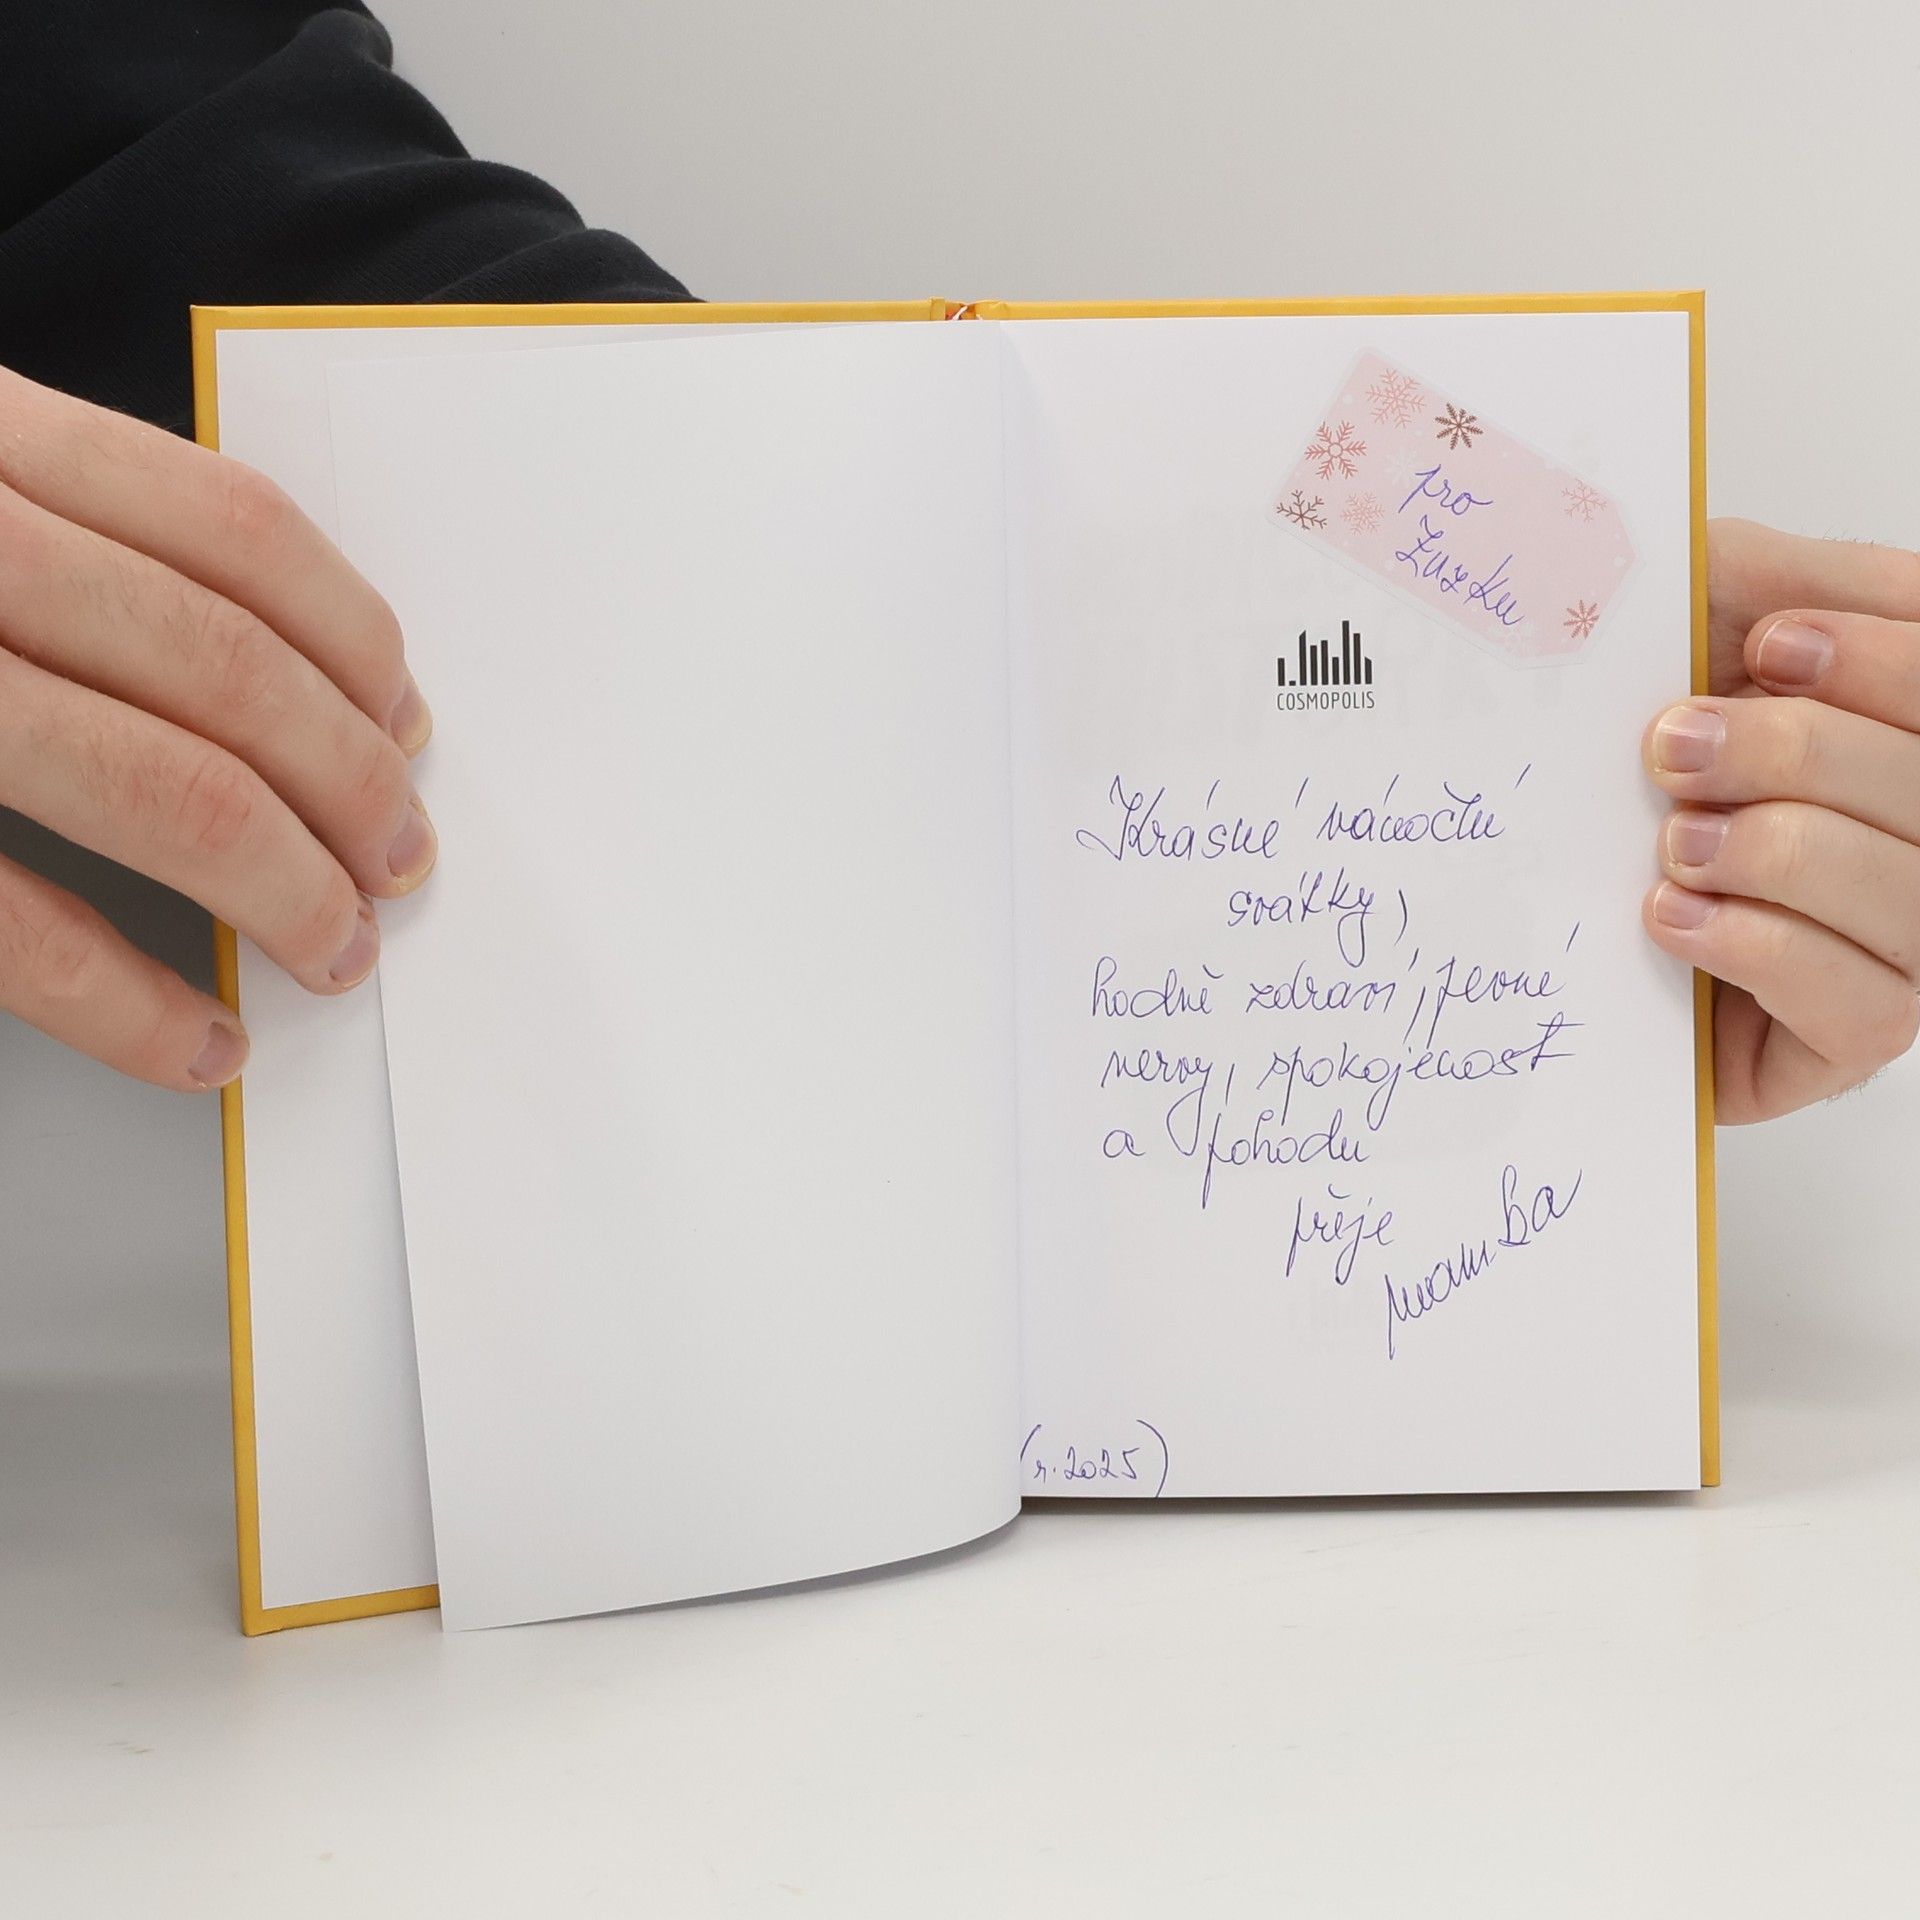 pro
Zuzku
COSMOPOLIS
Krásné vánoční
svátky,
hodně zdraví, pevné
nervy, spokojenost
a pohodu
přeje
(r. 2025)